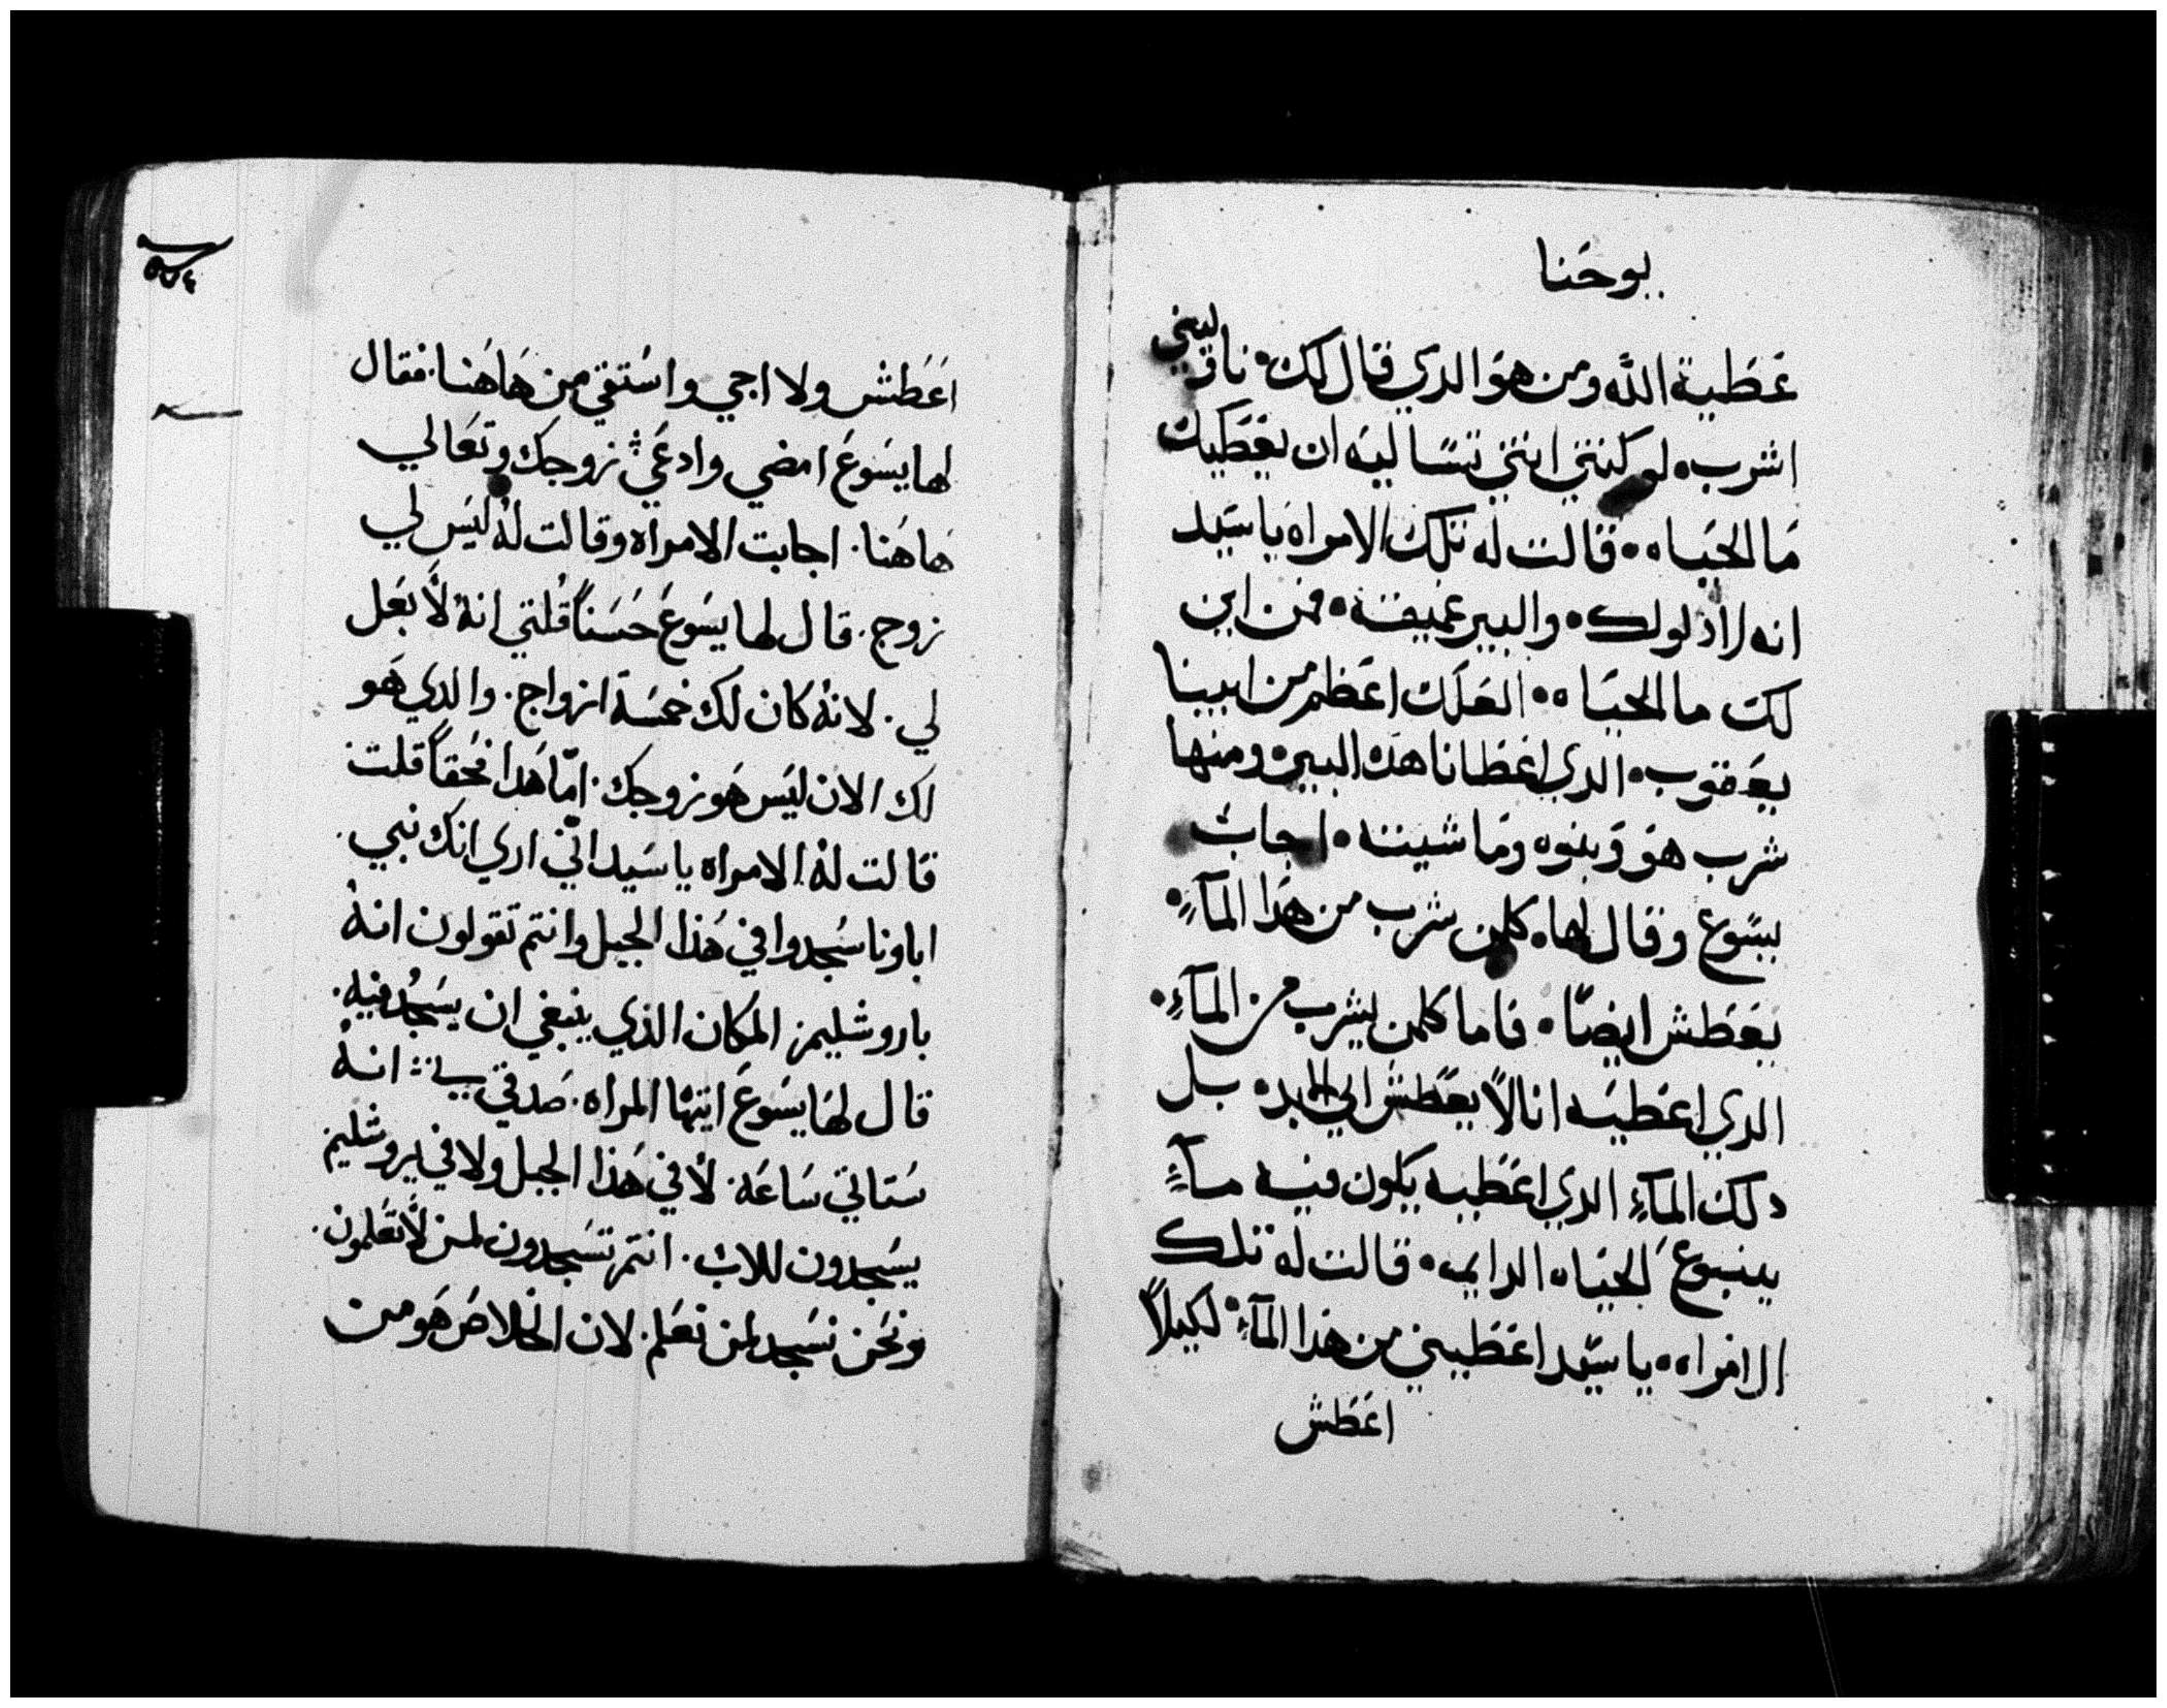 يوحَنا
عَطية الله ومن هوَ الدي قال لكِ• ناوليني
اشرب• لو كنتي انتي تسَاليَه ان يعَطيك
مَا الحيَاه•• قالت له تلك الامراه يا سَيد
انه لا دلو لك• والبير عميقة• فمن اين
لك ما الحيَاه•• العَلك اعَظم من ابينا
يعَقوب• الدي اعَطانا هده البير• ومنها
شرب هوَ وَبنوه ومَاشيته• اجابَ
يسَوع وقال لها• كلمن شرب من هدَا المآءِ•
يعَطش ايضًا• فاما كلمن يشرب من المآءِ•
الدي اعَطيَه انا لاَ يعَطشَ الي الابد• بل
دلك المآءِ الدي اعَطيه يكون فيه مآءٍ
ينبوع لحيَاه الدايمه• قالت له تلك
الامراه•• يا سَيد اعَطيني من هَدا المآءِ• لكيلاً
اعَطش
٥٧٤
اعَطش ولا اجي واسَتقي من هَاهَنا. فقال
لها يسَوعَ امضي وادعَي زوجك وتعَالي
هَاهَنا. اجابت الامراه وقالت لهُ ليَس لي
زوج. قال لها يسَوعَ حَسَناً قُلتي انهُ لاَ بعَل
لي. لانهُ كان لك خمسَة ازواج. والدي هَو
لك الان ليَس هَو زوجك. امّا هَدا فحَقاً قلت
قالت لهُ الامراه يا سَيد انّي اري انك نبي.
اباونا سَجدوا في هَذا الجبل وانتم تقولون انهُ
باروشليم المكان الذي ينبغي ان يسَجدُ فيه.
قال لهَا يسَوعَ ايتها المراه. صَدقيني انهُ
سَتاتي سَاعَة. لاَ في هَذا الجبل ولا في يروشليم
يسَجدون للاب. انتم تسَجدون لمن لاَ تعَلمون.
ونحَن نسَجد لمن نعَلم. لان الخلاصَ هَو من